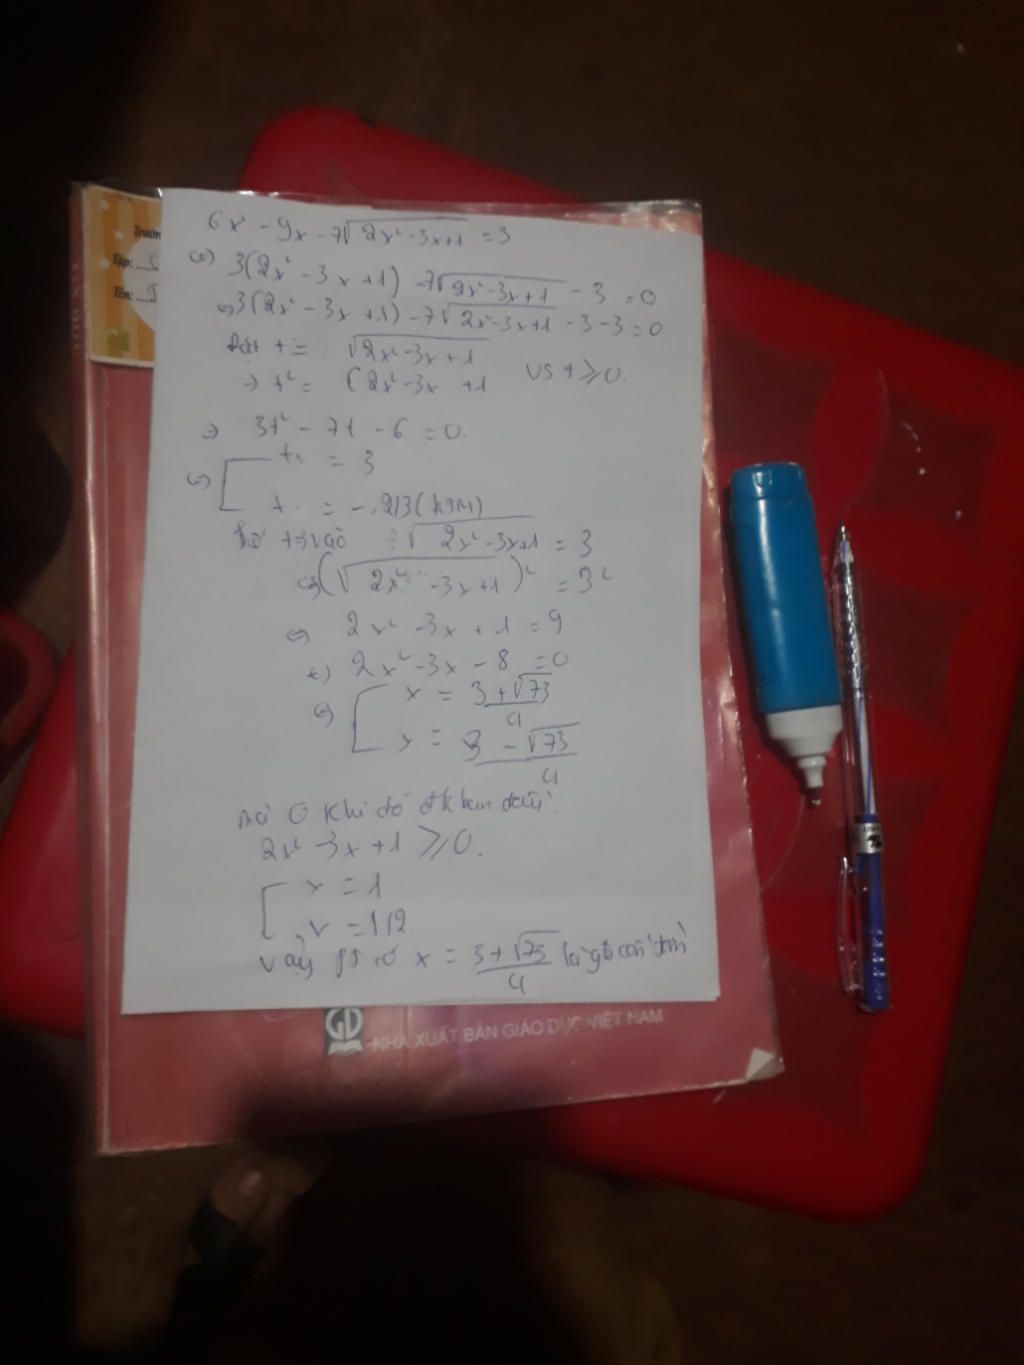 Trườn
Tập:
Tên:
6x² - 9x - 7√2x²-3x+1 = 3
3(2x² - 3x + 1) - 7√2x²-3x+1 - 3 = 0
3(2x² - 3x + 1) - 7√2x²-3x+1 - 3 - 3 = 0
Đặt t = √2x²-3x+1
t² = (2x²-3x +1 t ≥ 0.
3t² - 7t - 6 = 0.
= 3
t = -2/3
vào √2x²-3x+1 = 3
(√2x² -3x+1)² = 3²
2x² - 3x + 1 = 9
2x² - 3x - 8 = 0
x = 3+√73/4
x = 3 - √73/4
khi đó đk ban đầu
2x² - 3x + 1 ≥ 0.
x = 1
x = 1/2
Vậy x = 3+√73/4
GD
NHÀ XUẤT BẢN GIÁO DỤC VIỆT NAM